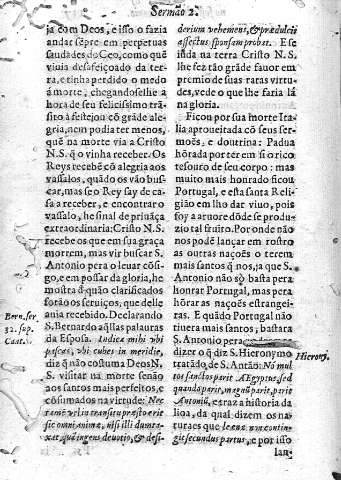 Sermão 2.
ja com Deos, e isso o fazia
andar sẽpre em perpetuas
saudades do Ceo, como quẽ
viuia desafeiçoado da ter-
ra, e tinha perdido o medo
á morte, chegandoselhe a
hora de seu felicissimo trã-
sito a festejou cõ grãde ale-
gria, nem podia ter menos,
quẽ na morte via a Christo
N.S. q̃ o vinha receber. Os
Reys recebẽ cõ alegria aos
vassalos, quãdo os vão bus-
car, mas se o Rey say de ca-
sa a receber, e encontrar o
vassalo, he sinal de priuãça
extraordinaria: Cristo N.S.
recebe os que em sua graça
morrem, mas vir buscar S.
Antonio pera o leuar cõsi-
go, e em possar da gloria, he
mostra dquão clarificados
forão os seruiços, que delle
auia recebido. Declarando
S. Bernardo aq̃llas palauras
da Esposa. Indica mihi vbi
pascas, vbi cubes in meridie,
diz q̃ não costuma Deos N,
S. visitar na morte senão
aos santos mais perfeitos, e
cõsumados na virtude: Nec
omni animæ, nisi illi dumta-
xat, quã ingens deuotio, & desi-
Bern. ser
32. sup.
Cant.
derium vehemens, & prædulcis
affectus sponsam probat. E se
inda na terra Cristo N.S.
lhe fez tão grãde fauor em
premio de suas raras virtu-
des, vede o que lhe faria lá
na gloria.
Ficou por sua morte Ita-
lia aproueitada cõ seus ser-
mões, e doutrina: Padua
hõrada por ter em si o rico
tesouro de seu corpo: mas
muito mais honrado ficou
Portugal, e esta santa Reli-
gião em lho dar viuo, pois
foy a aruore dõde se produ-
zio tal fruito. Por onde não
nos podẽ lançar em rostro
as outras nações o terem
mais santos q̃ nos, ja que S.
Antonio não sò basta pera
honrar Portugal, mas pera
hõrar as nações estrangei-
ras. E quãdo Portugal não
tiuera mais santos; bastara
S. Antonio pera
dizer o q̃ diz S. Hieronymo
tratãdo, de S. Antão: Nõ mul-
tos sanctos parit Ægyptus, sed
quando parit, magnũ parit, parit
Antoniũ, e traz a historia da
lioa, da qual dizem os na-
turaes que
secundus partus, e por isso
lan-
Hierony.